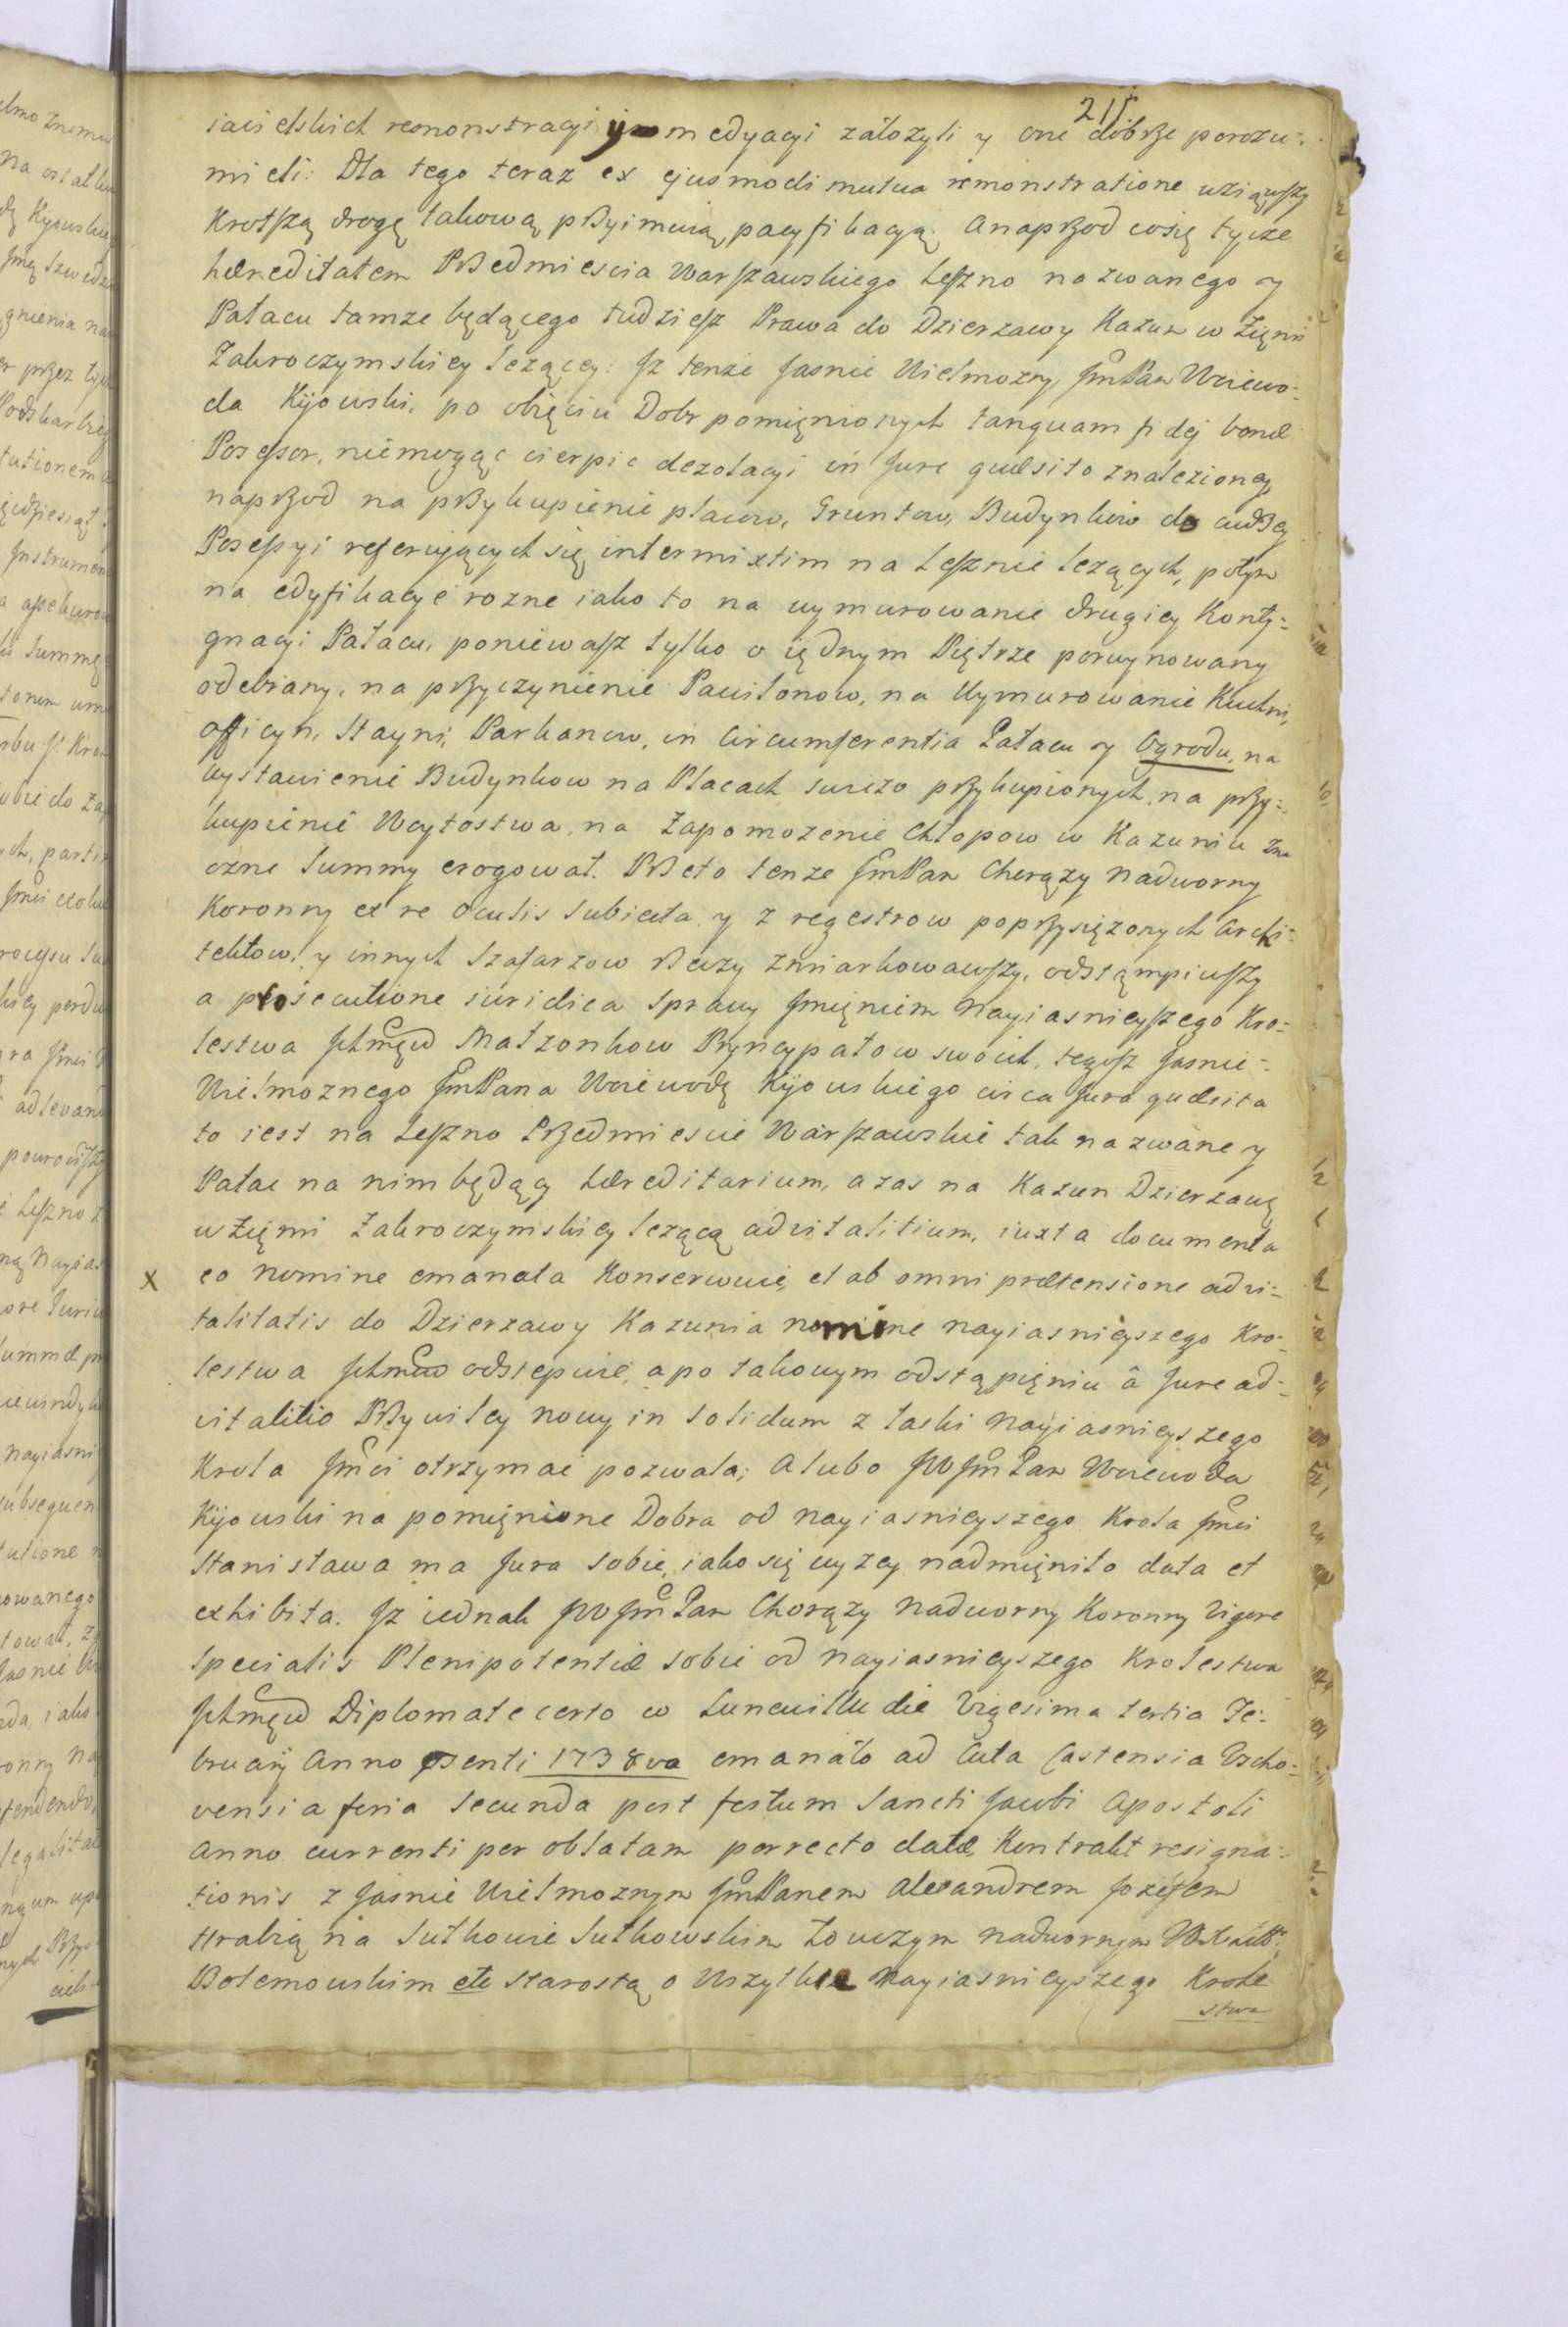 215
iacielskich remonstracyi y medyacyi założyli y one dobrze porozu=
mieli: Dla tego teraz ex ejusmodi mutua remonstratione wziąwszy
Krotszą drogę takową przyimuią pacyfikacyą. A naprzod co się tycze
hæreditatem Przedmiescia Warszawskiego Leszno nazwanego y
Pałacu tamże będącego tudziesz Prawa do Dzierzawy Kazun w Zięmi
Zakroczymskiey leżącey: Jz tenże Jasnie Wielmozny JmPan Woiewo=
da Kijowski, po obięciu Dobr pomięnionych tanquam fidej bonæ
Possessor, niemogąc cierpic dezolacyi in Jure quæsito znalezioney
naprzod na przykupienie placow, Gruntow, Budynkow do cudzey
Possessyi referujących się intermixtim na Lesznie leżących, potym
na edyfikacye rozne iako to na wymurowanie drugiey Konty=
gnacyi Pałacu, poniewasz tylko o iędnym Piętrze porujnowany
odebrany, na przyczynienie Pawilonow, na Wymurowanie Kuchni,
officyn, Stayni, Parkanow, in Circumferentia Pałacu y Ogrodu, na
wystawienie Budynkow na Placach swiezo przykupionych, na przy=
kupienie Woytostwa, na zapomozenie Chłopow w Kazuniu zna
czne Summy erogował. Przeto tenze JmPan Chorązy nadworny
Koronny ex re oculis subiecta y z regestrow poprzysiężonych Archi=
tektow, y innych Szafarzow Rzeczy zmiarkowawszy, odstąmpiwszy
a prosecutione iuridica Sprawy Jmięniem Nayiasnieyszego Kro=
lestwa Jchmęćw Małzonkow Pryncypałow swoich, tegosz Jasnie=
Wielmoznego JmPana Woiewodę Kijowskiego circa Jura quæsita
to iest na Leszno Przedmiescie Warszawskie tak nazwane y
Pałac na nim będący hæreditarium, a zas na Kazun Dzierzawę
w Zięmi Zakroczymskiey leżącą advitalitium, iuxta documenta
X eo nomine emanata Konserwuie, et ab omni prætensione advi=
talitatis do Dzierzawy Kazunia nomine nayiasnieyszego Kro=
lestwa Jchmćw odstępuie, a po takowym odstąpięniu â Jure ad=
vitalitio Przywiley nowy in solidum z łaski nayiasnieyszego
Krola Jmći otrzymać pozwala; Alubo JWJmPan Woiewoda
Kijowski na pomięnione Dobra od nayiasnieyszego Krola Jmći
Stanisława ma Jura sobie, iako się wyzey nadmięniło data et
exhibita. Jz iednak JWJmPan Chorązy Nadworny Koronny Vigore
Specialis Plenipotentiæ sobie od nayiasnieyszego Krolestwa
Jchmęćw Diplomate certo w Lunewillu die Vigesima tertia Fe=
bruarij Anno psenti 1738va emanato ad Acta Castensia Vscho=
vensia feria Secunda post festum Sancti Jacobi Apostoli
Anno currenti per oblatam porrecto datæ, Kontrakt resigna=
tionis z Jasnie Wielmoznym JmPanem Alexandrem Jozefem
Hrabią na Sułkowie Sułkowskim Łowczym nadwornym
Bolemowskim etc Starostą o Wszytkie Nayiasnieyszego Krole
stwa